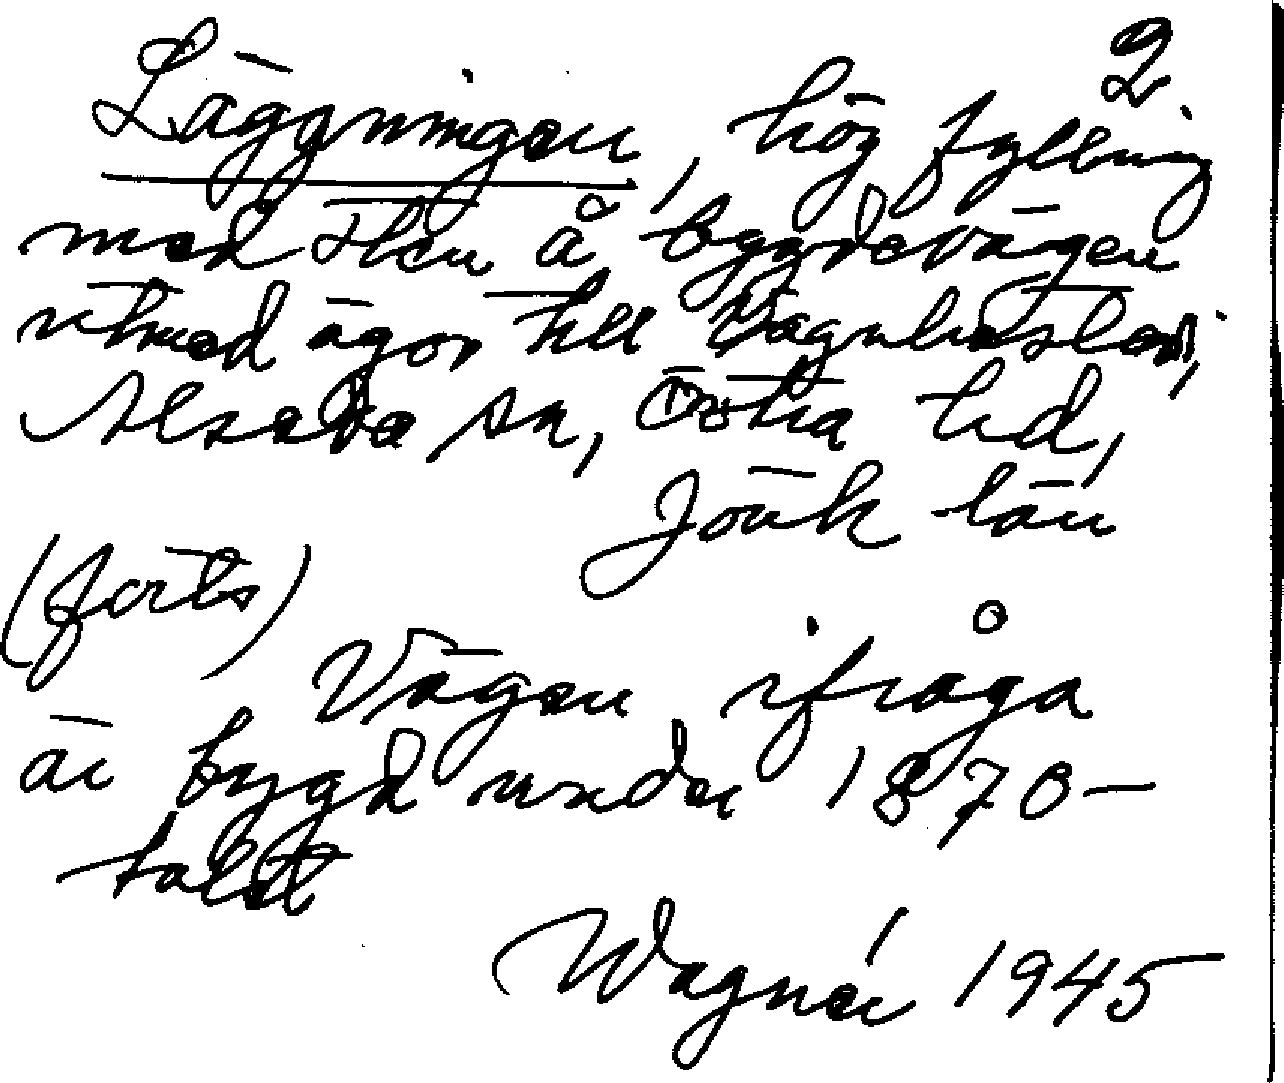 2
Läggningen, hög fyllning
med sten å bygdevägen
utmed ägor till
Alseda sn, Östra hd,
Jönk län
(forts)
Vägen ifråga
är bygd under 1870–
talet
Wagnér 1945